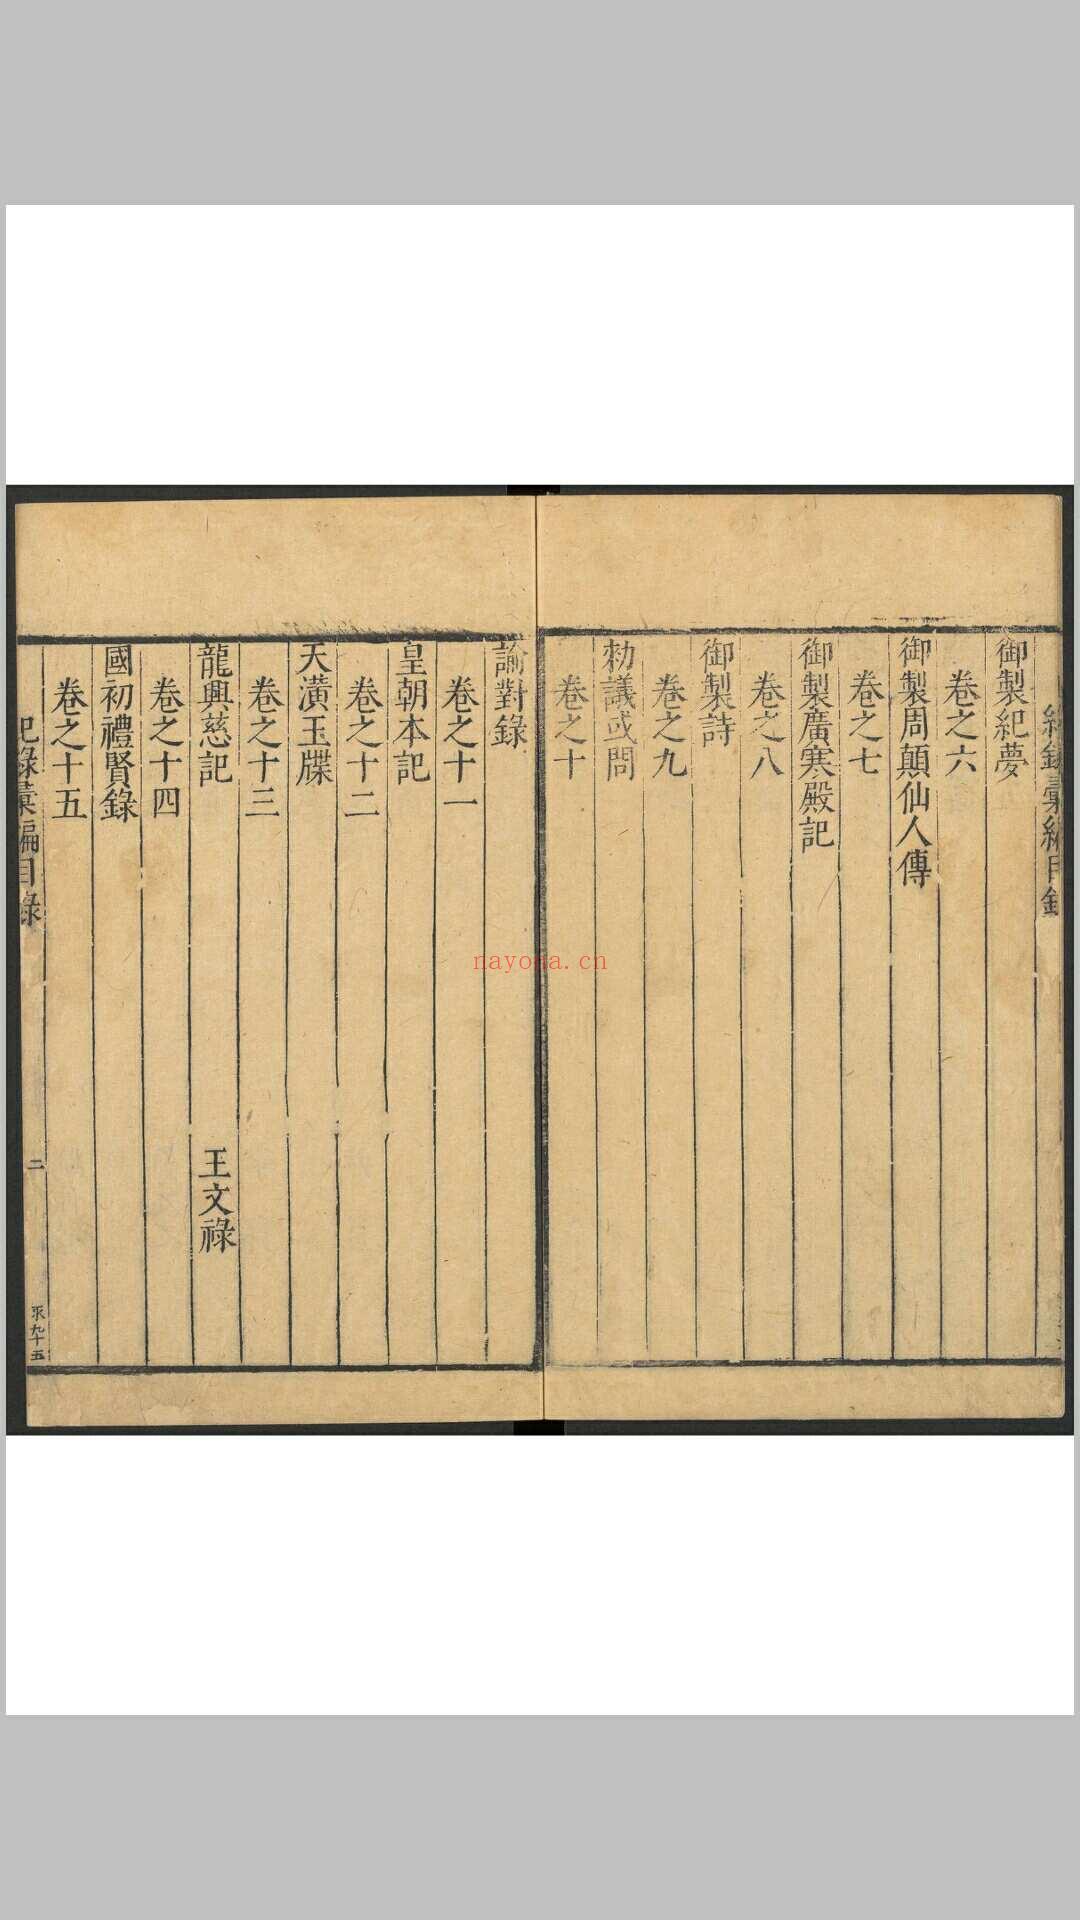 紀錄彙編目錄
御製紀夢
卷之六
御製周顛仙人傳
卷之七
御製廣寒殿記
卷之八
御製詩
卷之九
勑議或問
卷之十
諭對錄
卷之十一
皇朝本記
卷之十二
天潢玉牒
卷之十三
龍興慈記 王文祿
卷之十四
國初禮賢錄
卷之十五
紀錄彙編目錄 二
nayona.cn